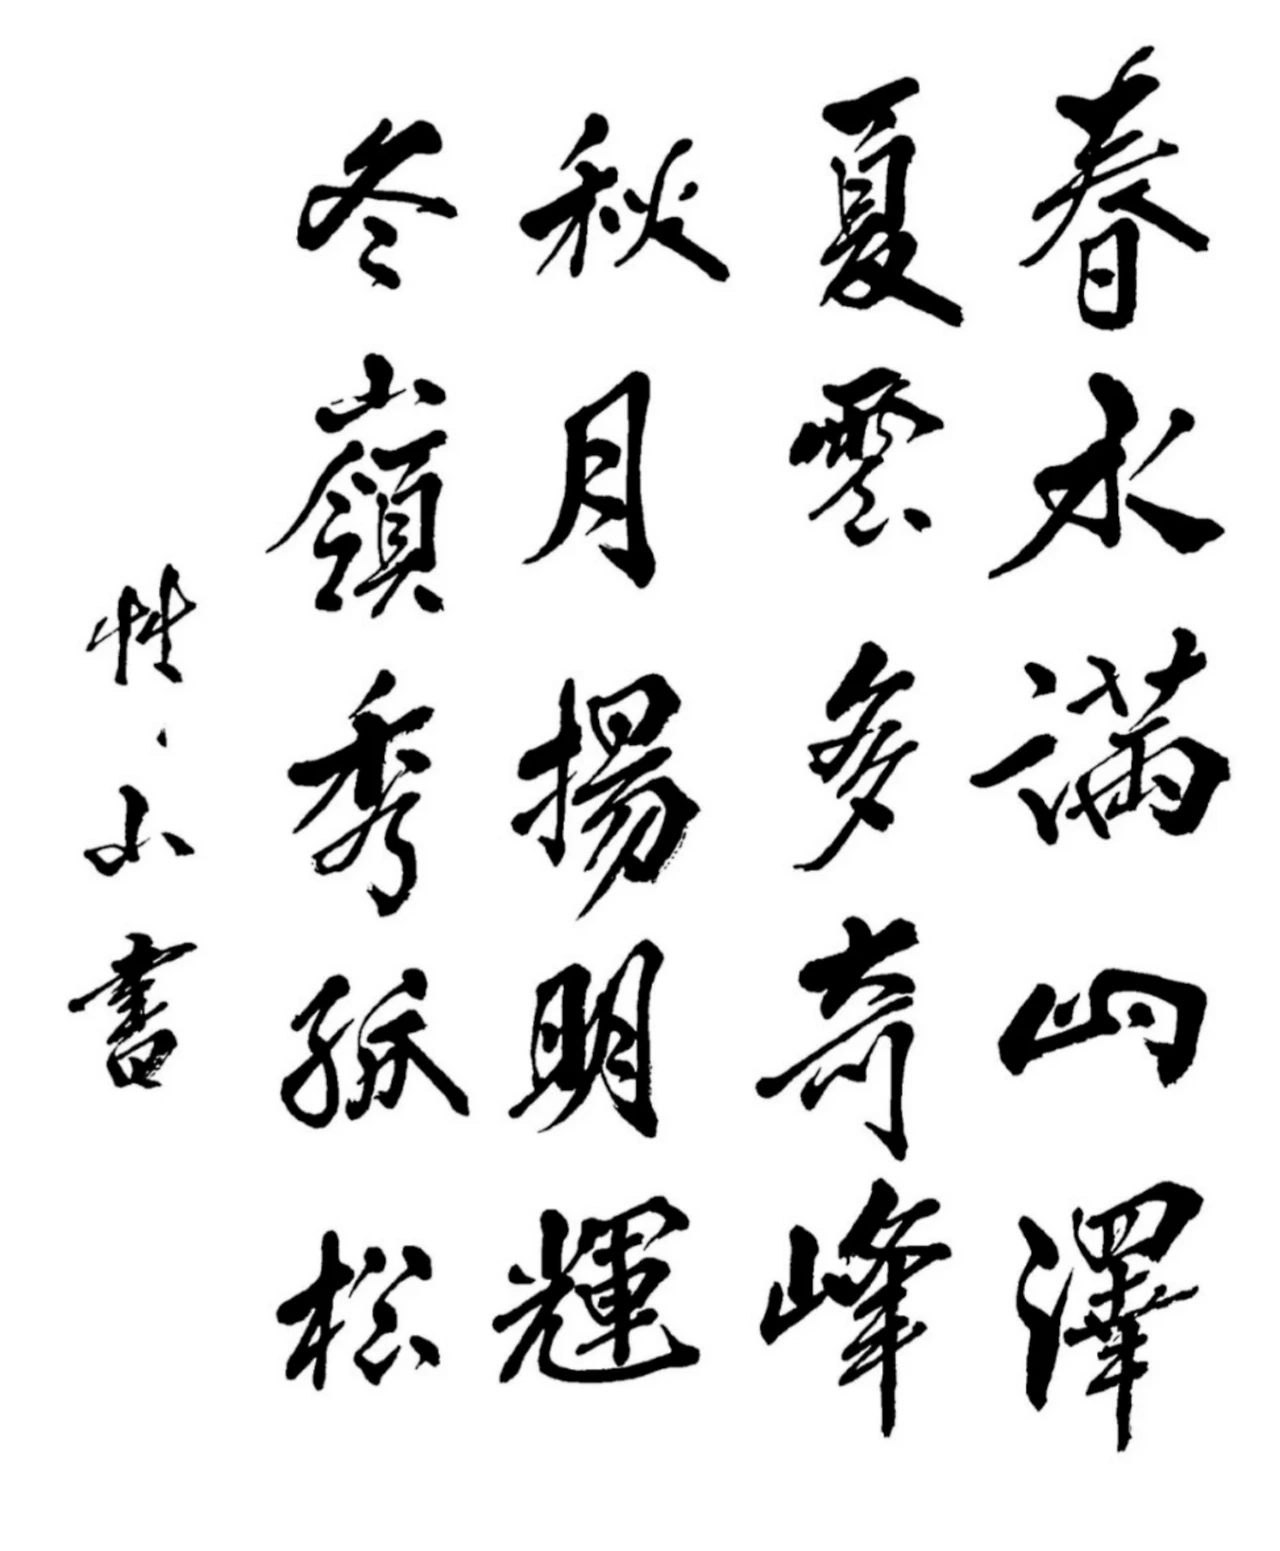 春水滿四澤
夏雲多奇峰
秋月揚明輝
冬嶺秀孤松
性山書